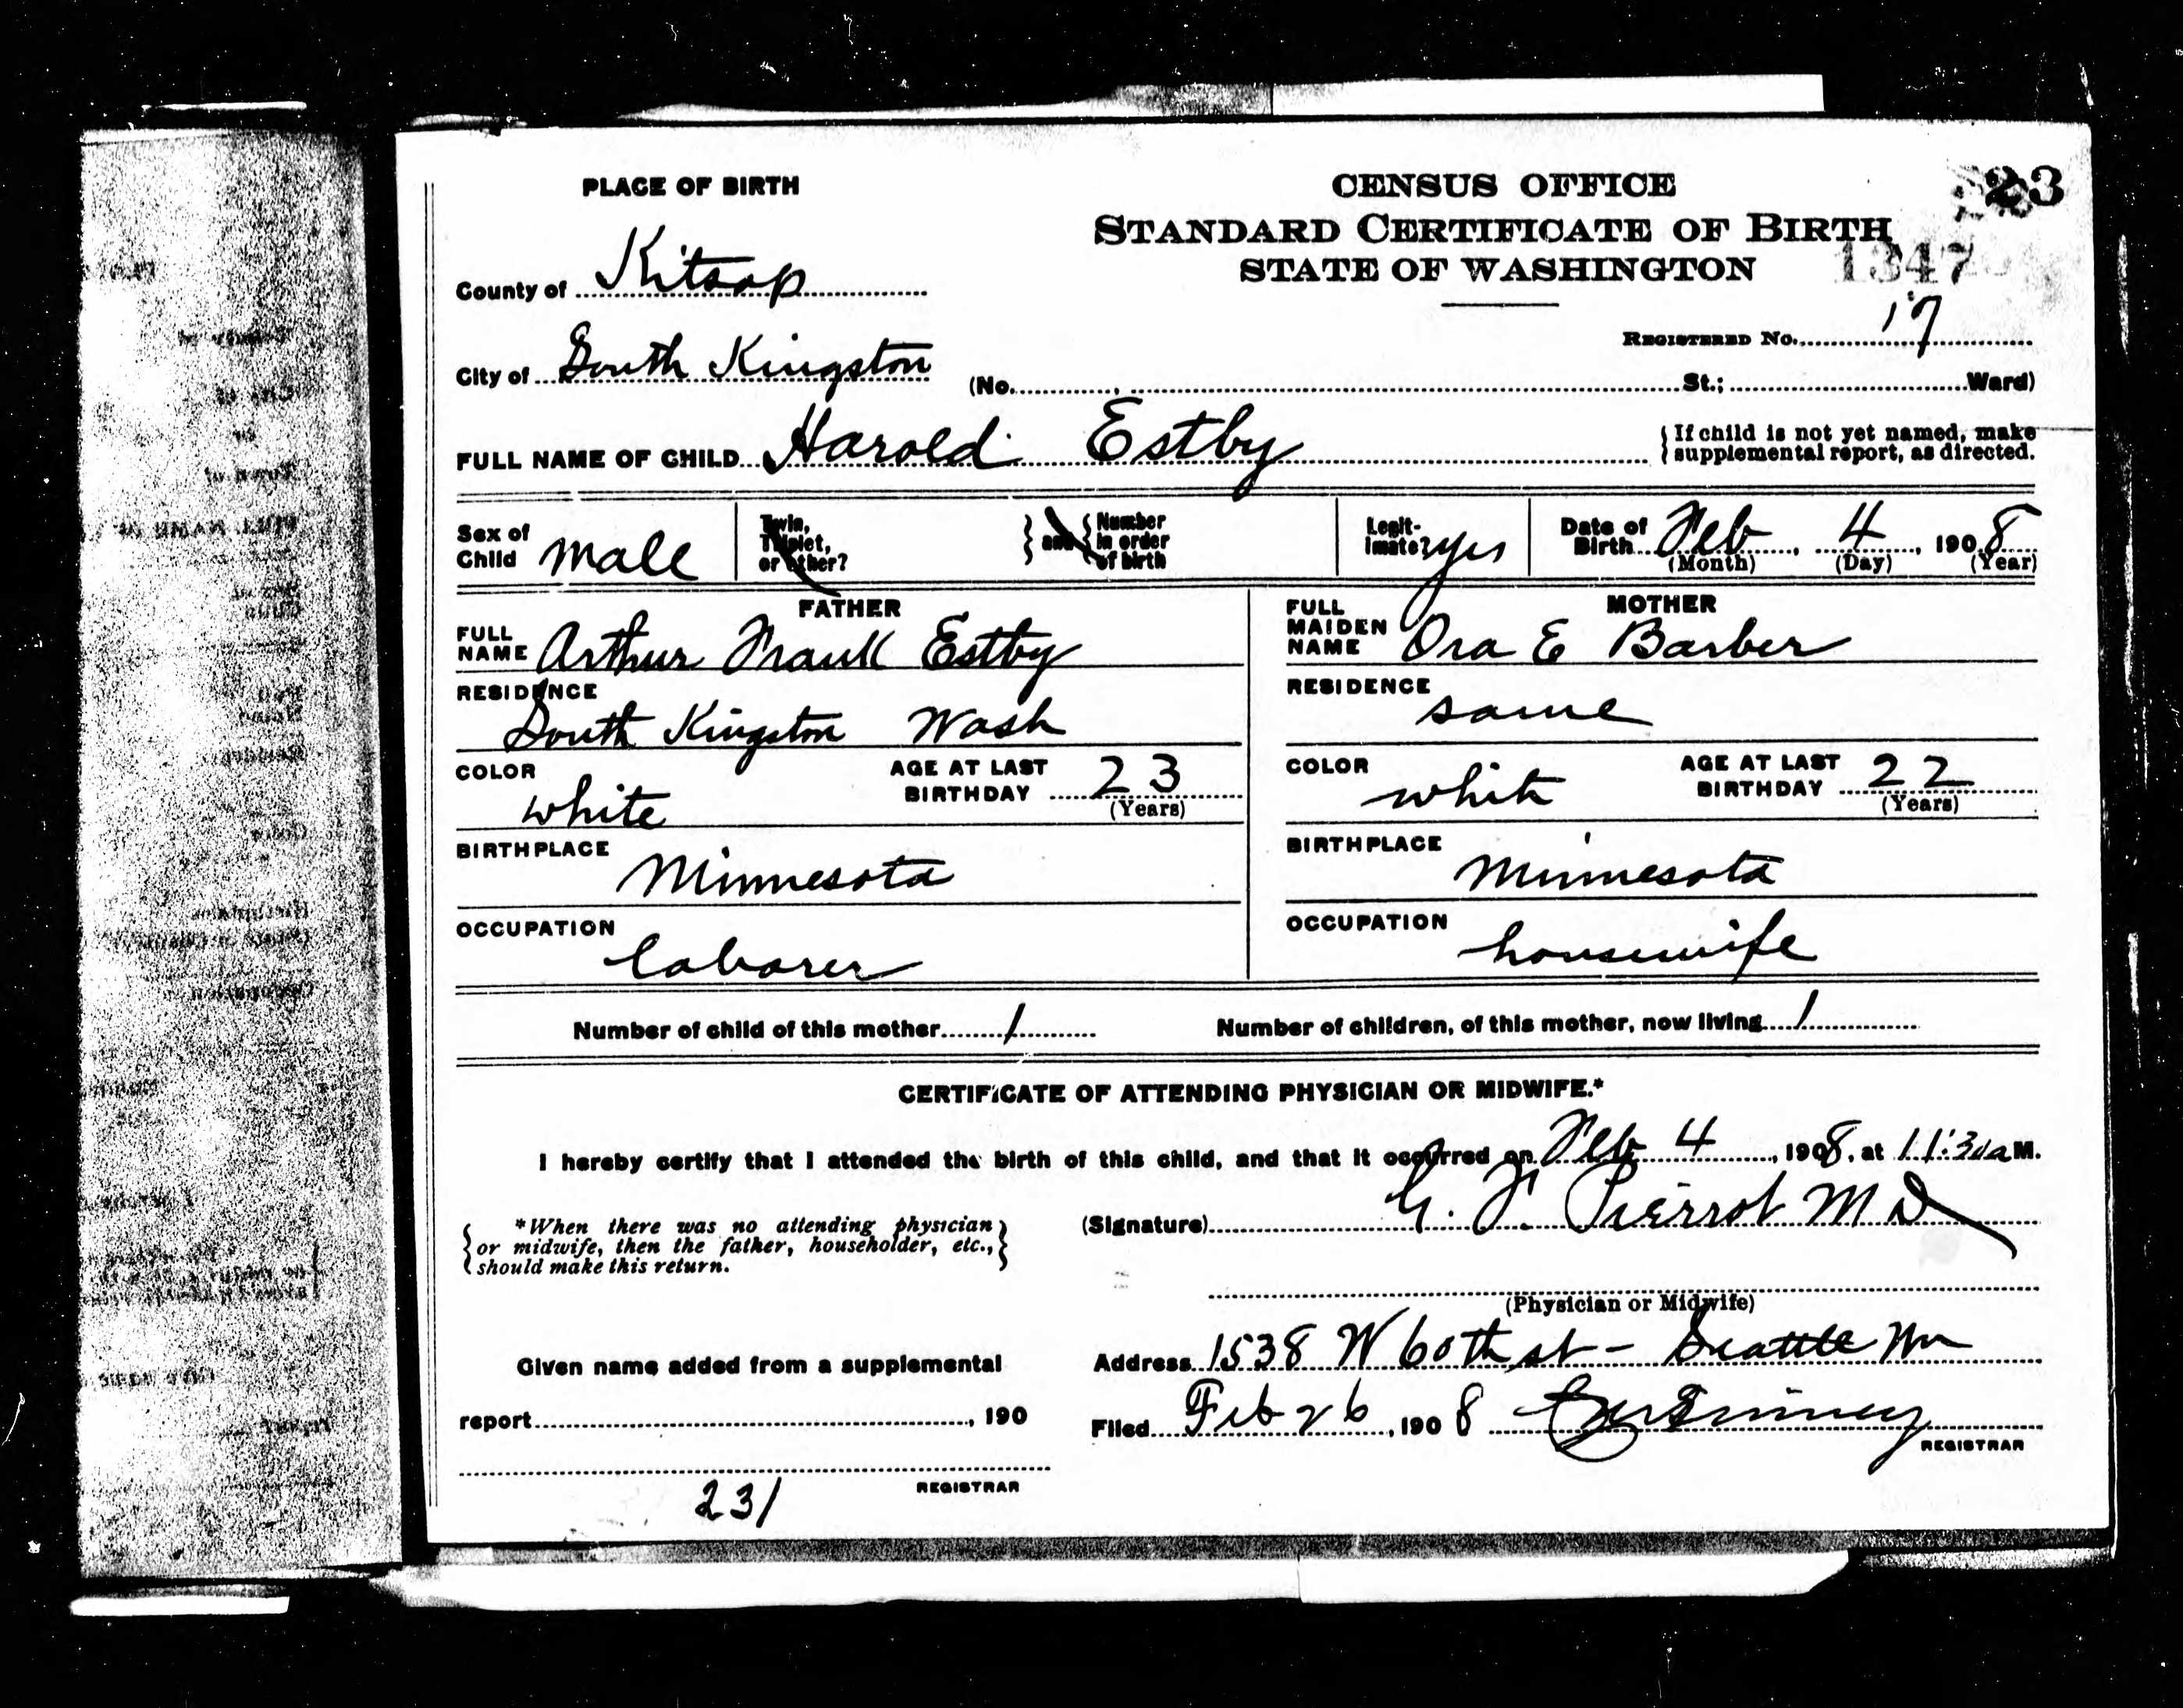 PLACE OF BIRTH
CENSUS OFFICE
23
STANDARD CERTIFICATE OF BIRTH
STATE OF WASHINGTON
1347
County of Kitsap
REGISTERED No. 17
City of South Kingston (No. , St.; Ward)
FULL NAME OF CHILD Harold Estby
{If child is not yet named, make
supplemental report, as directed.
Sex of
Child male
Twin,
Triplet,
or other?
} and { Number
in order
of birth
Legit-
imate? yes
Date of
Birth Feb, 4, 1908
(Month) (Day) (Year)
FATHER
FULL
NAME Arthur Frank Estby
RESIDENCE
South Kingston Wash
COLOR
white
AGE AT LAST
BIRTHDAY 23
(Years)
BIRTHPLACE
Minnesota
OCCUPATION
laborer
MOTHER
FULL
MAIDEN
NAME Ora E Barber
RESIDENCE
same
COLOR
white
AGE AT LAST
BIRTHDAY 22
(Years)
BIRTHPLACE
Minnesota
OCCUPATION
housewife
Number of child of this mother 1 Number of children, of this mother, now living 1
CERTIFICATE OF ATTENDING PHYSICIAN OR MIDWIFE.*
I hereby certify that I attended the birth of this child, and that it occurred on Feb 4, 1908, at 11:30 a M.
{ *When there was no attending physician
or midwife, then the father, householder, etc.,
should make this return. }
(Signature) G. F. Pierrot M D
(Physician or Midwife)
Address 1538 W 60th st - Seattle Wn
Given name added from a supplemental
report , 190
Filed Feb 26, 1908
REGISTRAR
REGISTRAR
231